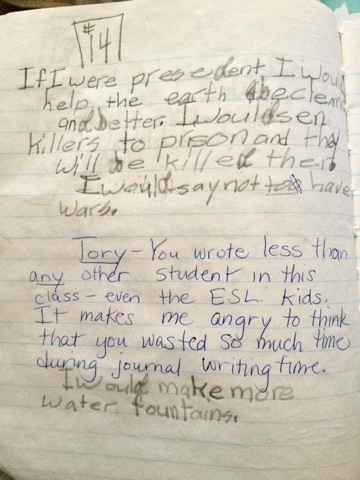 #14
If I were presedent I would
help the earth be clean
and better. I would sen
killers to prison and they
will be killed ther.
I would say not to have
wars.
Tory - You wrote less than
any other student in this
class - even the ESL. kids.
It makes me angry to think
that you wasted so much time
during journal writing time.
I would make more
water fountains.